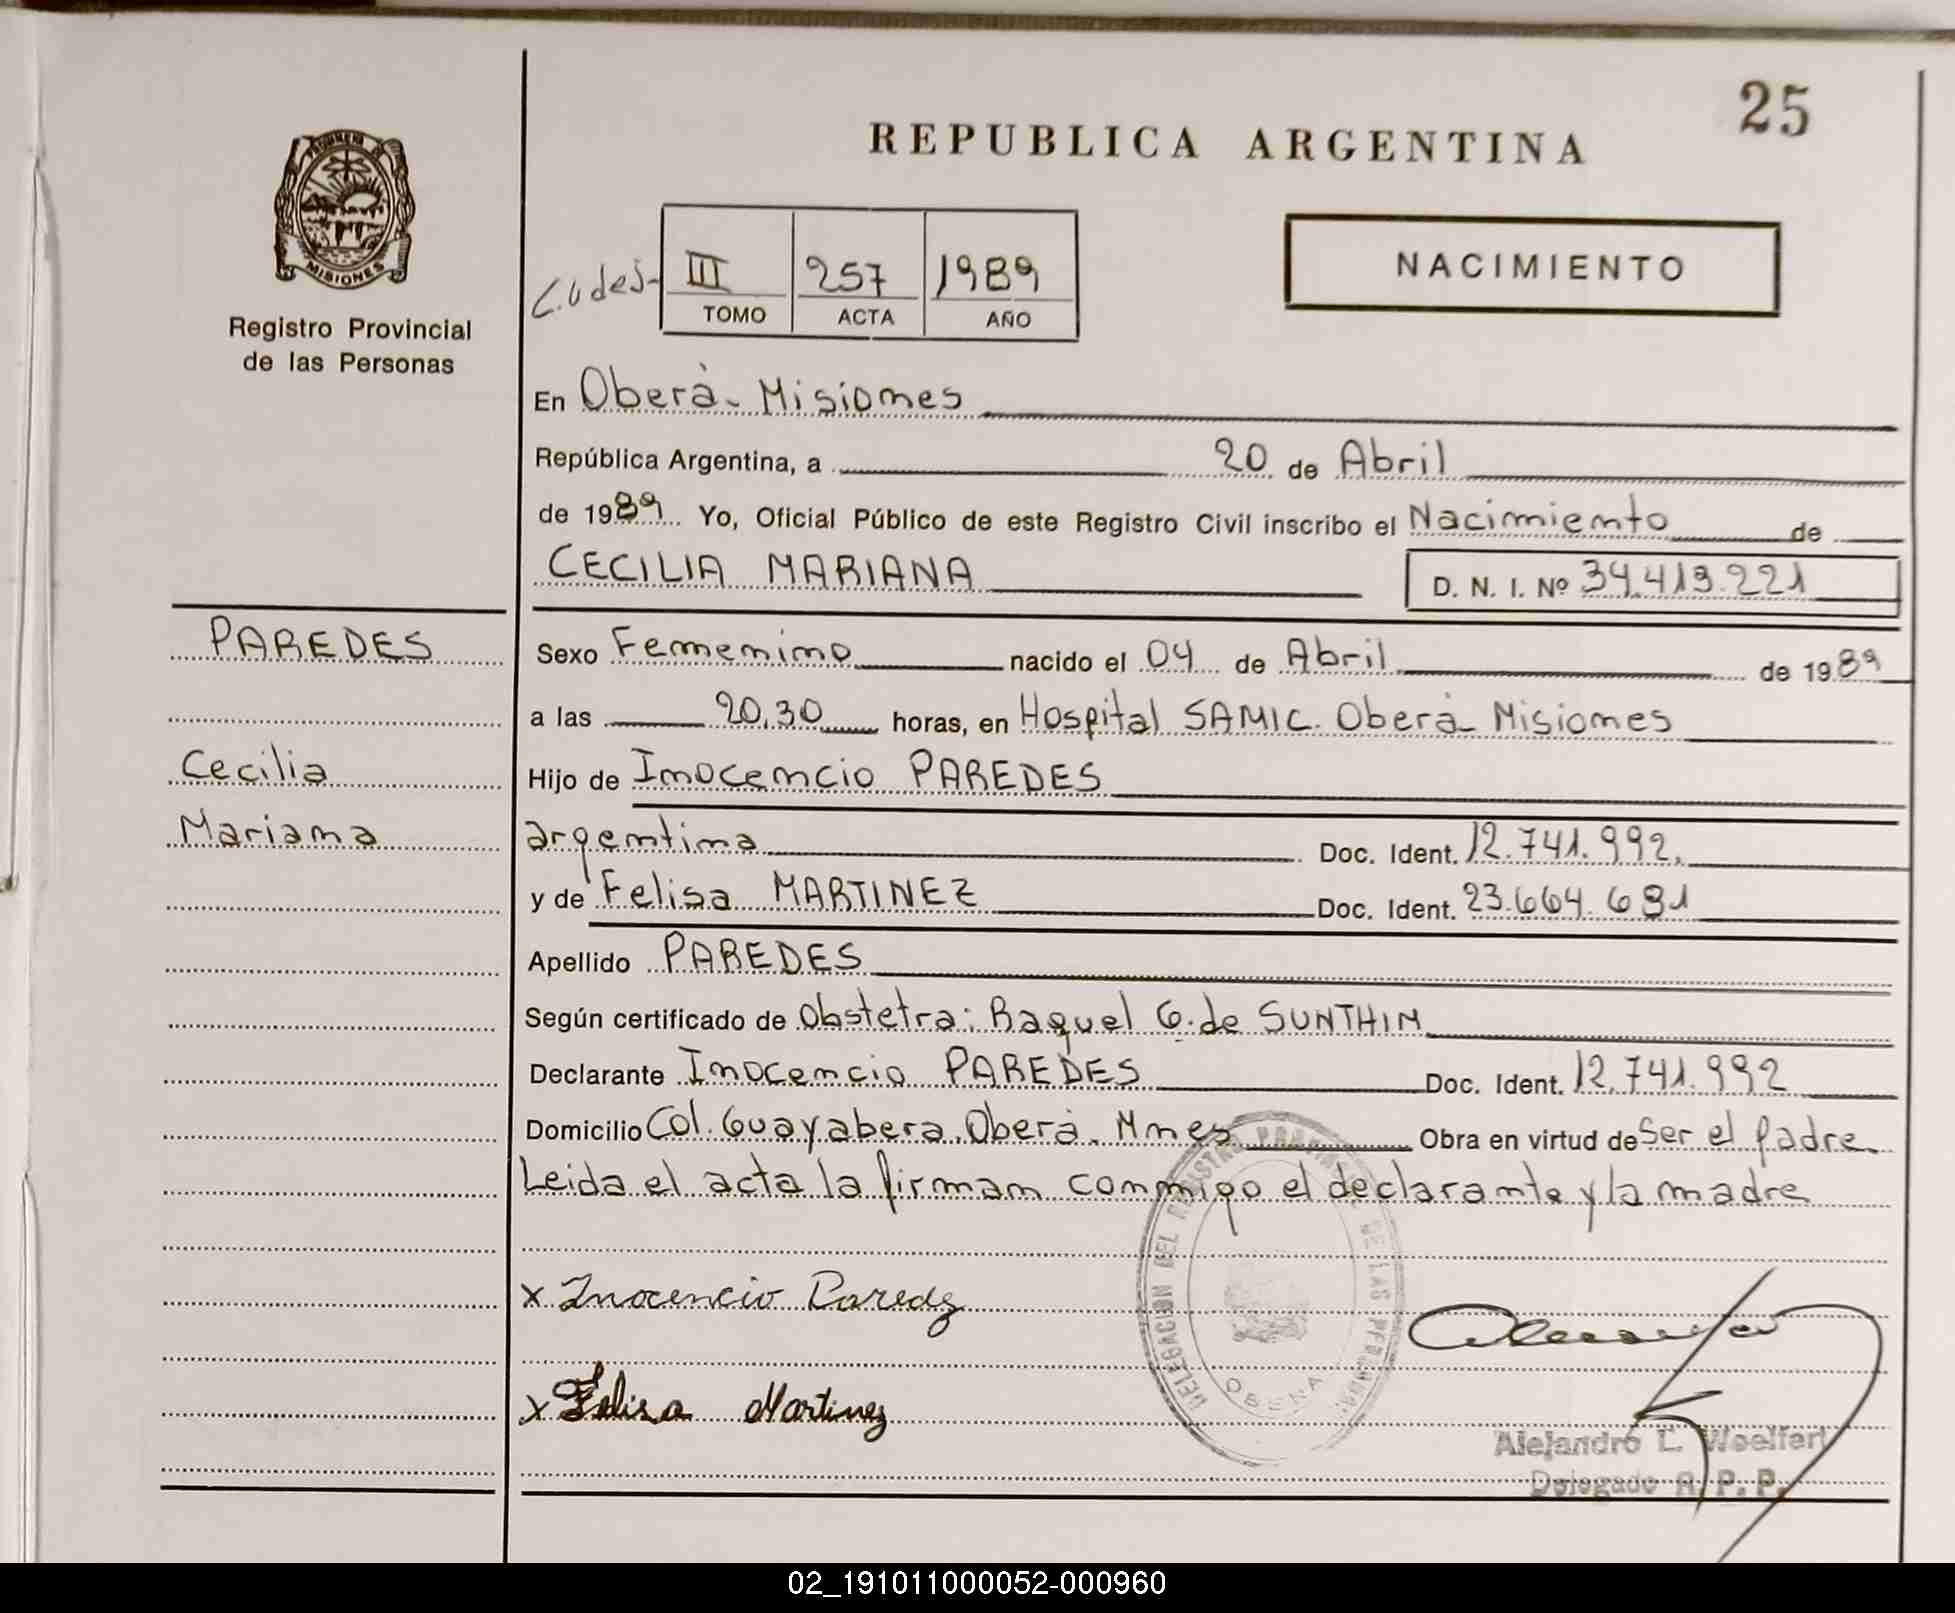 25
REPUBLICA ARGENTINA
PROVINCIA DE
MISIONES
Registro Provincial
de las Personas
III 257 1989
TOMO ACTA AÑO
NACIMIENTO
En Oberá - Misiones
República Argentina, a 20 de Abril
de 1989 Yo, Oficial Público de este Registro Civil inscribo el Nacimiento de
CECILIA MARIANA D. N. I. Nº 34.413.221
PAREDES
Cecilia
Mariana
Sexo Femenino nacido el 04 de Abril de 1989
a las 20,30 horas, en Hospital SAMIC. Oberá - Misiones
Hijo de Inocencio PAREDES
argentina Doc. Ident. 12.741.992.
y de Felisa MARTINEZ Doc. Ident. 23.664.681
Apellido PAREDES
Según certificado de Obstetra: Raquel G. de SUNTHIM
Declarante Inocencio PAREDES Doc. Ident. 12.741.992
Domicilio Col. Guayabera. Oberá. Mnes Obra en virtud de Ser el padre
Leida el acta la firman conmigo el declarante y la madre
x Inocencio Paredez
x Felisa Martinez
DELEGACION DEL REGISTRO PROVINCIAL DE LAS PERSONAS
OBERA
Alejandro L. Woelfert
Delegado R. P. P.
02_191011000052-000960